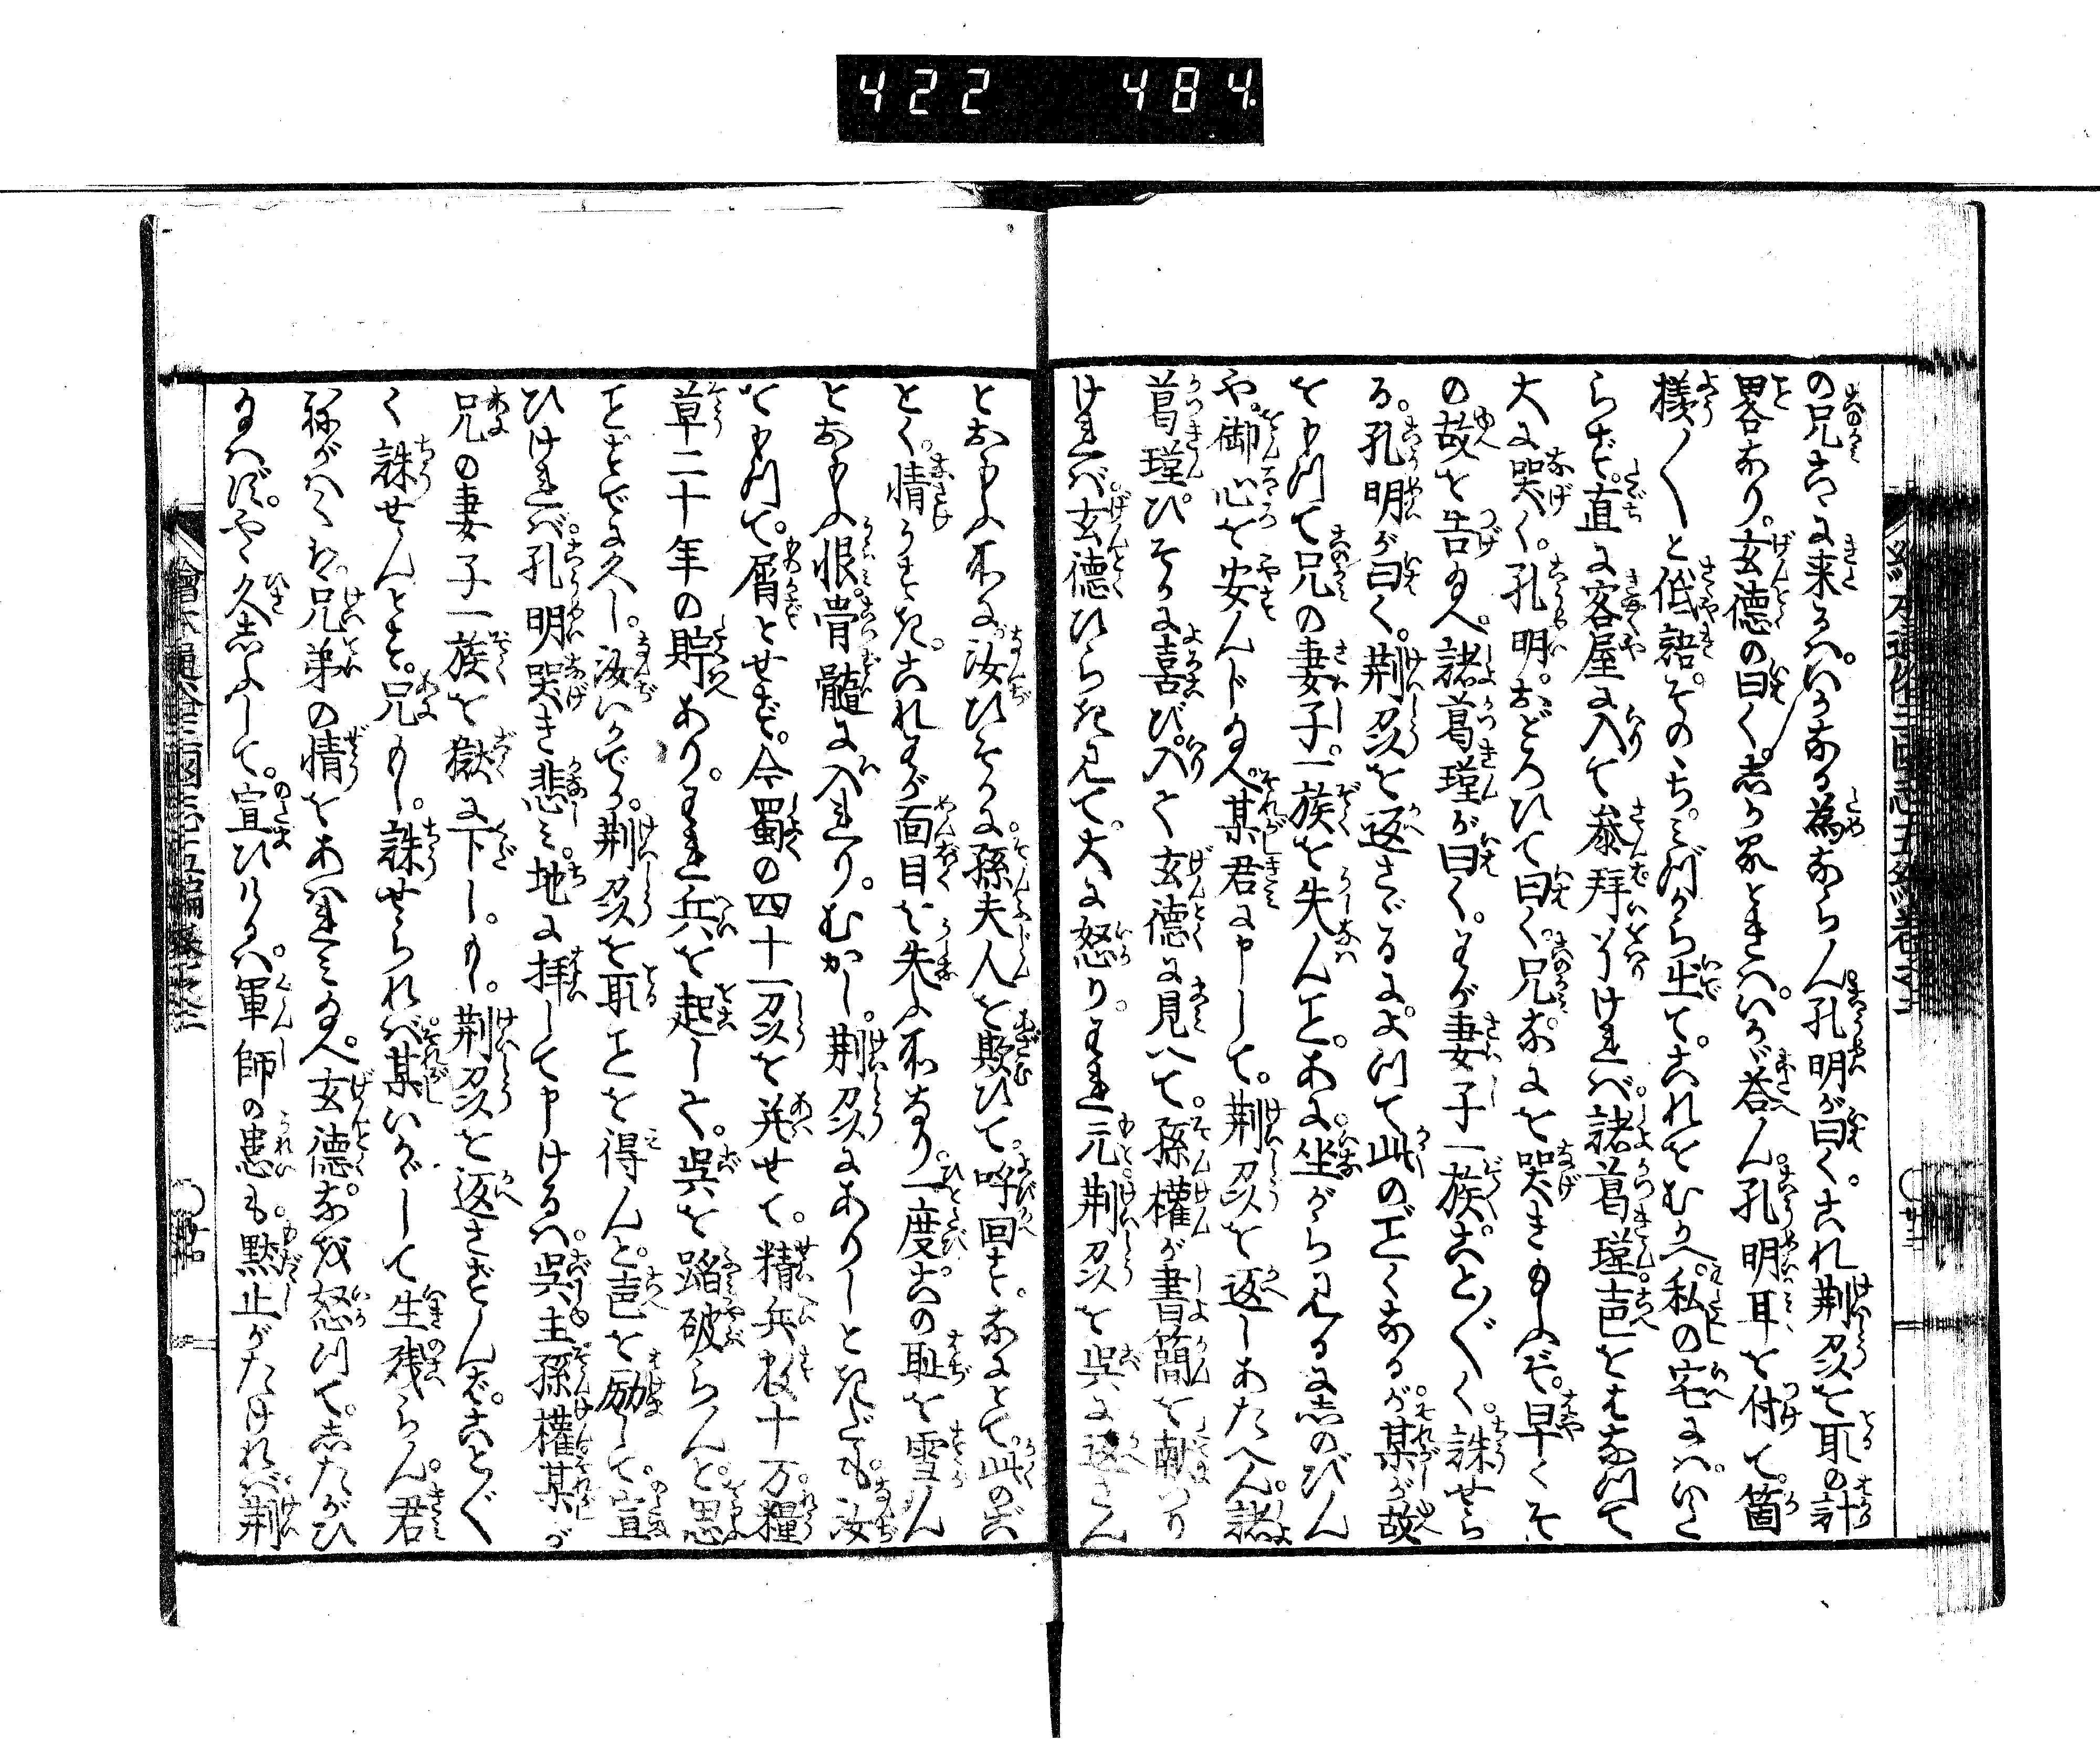 422 484
の兄こゝに来るハいかなる為ならん孔明が曰くこれ荆州を取の計
畧あり玄徳の曰くしからバ いかゞ荅ん孔明耳を付て箇
様〳〵と低語そのゝちミづから出てこれをむかへ私の宅にハいた
らず直に客屋に入て叅拜しけれバ諸葛瑾声をはなつて
大に哭く孔明おどろひて曰く兄なにを哭き玉ふぞ早くそ
の故を告玉へ諸葛瑾が曰くわが妻子一族こと〴〵く誅せら
る孔明が曰く荆州を返さゞるによつて此のごとくなるが某が故
をもつて兄の妻子一族を失んとあに坐がら見るに志のびん
や御心を安んド玉へ某君に申して荆州を返しあたへん諸
葛瑾ひそかに喜び入て玄徳に見へて孫權が書簡を献つり
けれバ玄徳ひらき見て大に怒りわれ元荆州を呉に返さん
とおもふ所に汝ひそかに孫夫人を欺ひて呼回すなにとて此のご
とく情うすきこれわが面目を失ふ所なり一度この耻を雪ん
とおもふ恨骨髓に入れりむかし荆州にありしときだも汝
をもつて屑とせず今蜀の四十一州を并せて精兵數十万糧
草二十年の貯ありわれ兵を起して呉を踏破らんと思
ことすでに久し汝いかでか荆州を取ことを得んと声を励して宣
ひけれバ孔明哭き悲ミ地に拝して申けるハ呉主孫權某が
兄の妻子一族を獄に下しもし荆州を返さずんバこと〴〵
く誅せんとす兄もし誅せられバ某いかゞして生残らん君
ねがハくハ兄弟の情をあハれミ玉へ玄徳なを怒つてしたがひ
玉ハずやゝ久しふして宣ひけるハ軍師の患も黙止がたけれバ荆